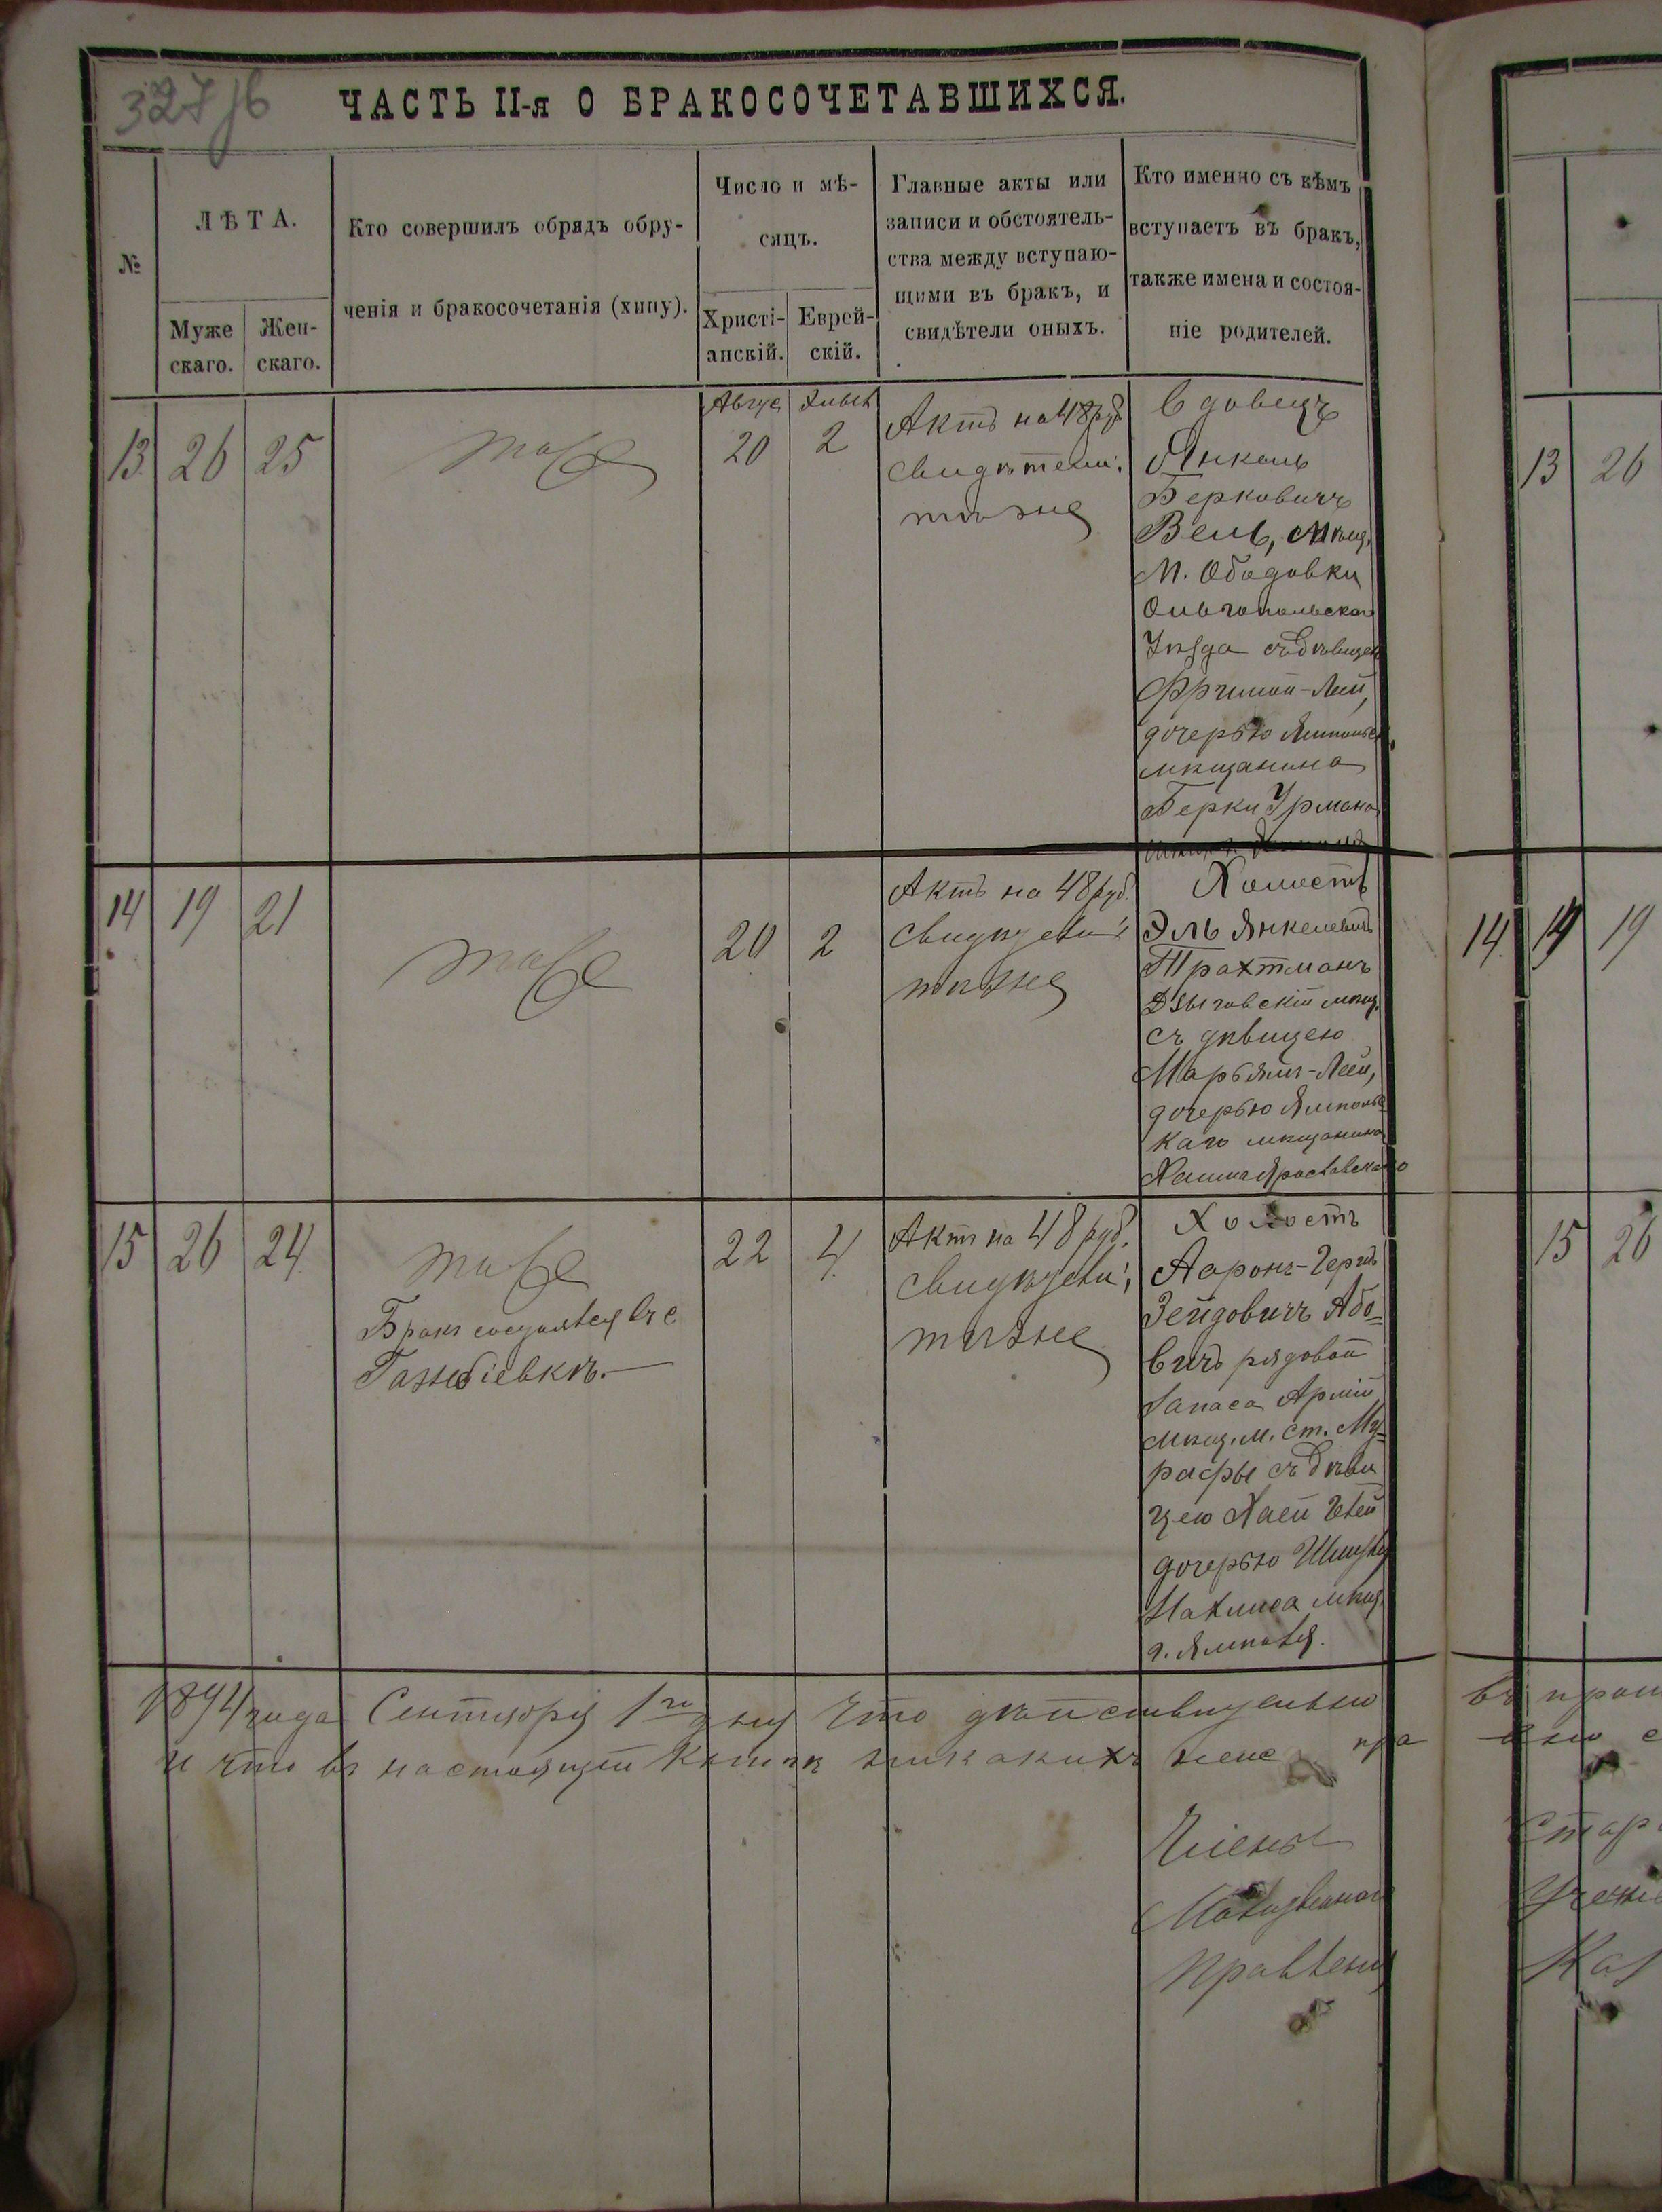 327 об
ЧАСТЬ II-я О БРАКОСОЧЕТАВШИХСЯ.
№
ЛѢТА.
Муже
скаго.
Жен-
скаго.
Кто совершилъ обрядъ обру-
ченія и бракосочетанія (хипу).
Число и мѣ-
сяцъ.
Христі-
анскій.
Еврей-
скій.
Главные акты или
записи и обстоятель-
ства между вступаю-
щими въ бракъ, и
свидѣтели оныхъ.
Кто именно съ кѣмъ
вступаетъ въ бракъ,
также имена и состоя-
ніе родителей.
13 26 25
тоже
Авгус
20
2
Актъ на 48 руб
Свидѣтели:
тѣже
Вдовецъ
Янкель
Берковичъ
Вель, мѣщ.
М. Ободовки
Ольгопольскаго
Уѣзда съ дѣвицею
Фримой-Леей,
дочерью Ямпольск.
мѣщанина
Берки Урмана
14 19 21
тоже
20 2
Актъ на 48 руб.
Свидѣтели:
тѣже
Холостъ
Эль Янкелевичъ
Трахтманъ
Дзыговскій мѣщ.
съ дѣвицею
Марьямъ-Леей,
дочерью Ямпольс
каго мѣщанина
Хаима Ярославскаго
15 26 24
тоже
Бракъ состоялся въ с.
22 4
Актъ на 48 руб.
Свидѣтели:
тѣже
Холостъ
Ааронъ-Гершъ
Зейдовичъ Або-
вичъ рядовой
Запаса Арміи
мѣщ. м. Ст. Му-
рафы съ дѣви
цею Хаей
дочерью
мѣщ.
г. Ямполя.
1894 года Сентября 1го дня Что дѣйствительно
и что въ настоящей Книгѣ никакихъ
Члены
Правленія
13 26
14 19
15 26